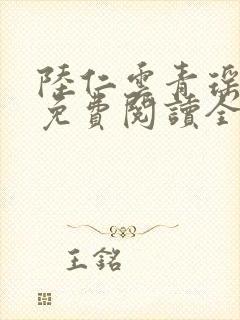 陸仁雲青瑤
免費閱讀全
王銘